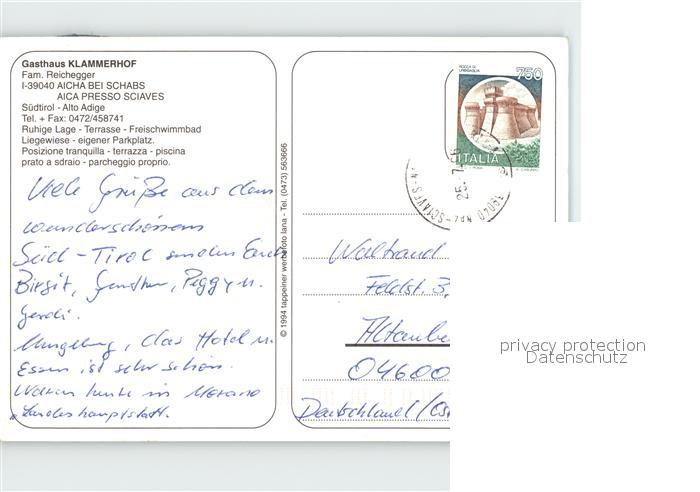 Gasthaus KLAMMERHOF
Fam. Reichegger
I-39040 AICHA BEI SCHABS
AICA PRESSO SCIAVES
Südtirol - Alto Adige
Tel. + Fax: 0472/458741
Ruhige Lage - Terrasse - Freischwimmbad
Liegewiese - eigener Parkplatz.
Posizione tranquilla - terrazza - piscina
prato a sdraio - parcheggio proprio.
Viele Grüße aus dem
wunderschönen
Süd-Tirol senden Euch
Birgit, Gunther, Peggy u.
Gerdi.
Umgebung, das Hotel u.
Essen ist sehr schön.
Waren heute in Merano
„Landeshauptstatt.
© 1994 tappeiner werbefoto lana - Tel. (0473) 563666
ROCCA DI URBISAGLIA
750
ITALIA
39040 NAZ-SCIAVES
25.7.
Waltraud
Feldst. 3,
Altenbu
04600
Deutschland/Os
privacy protection
Datenschutz